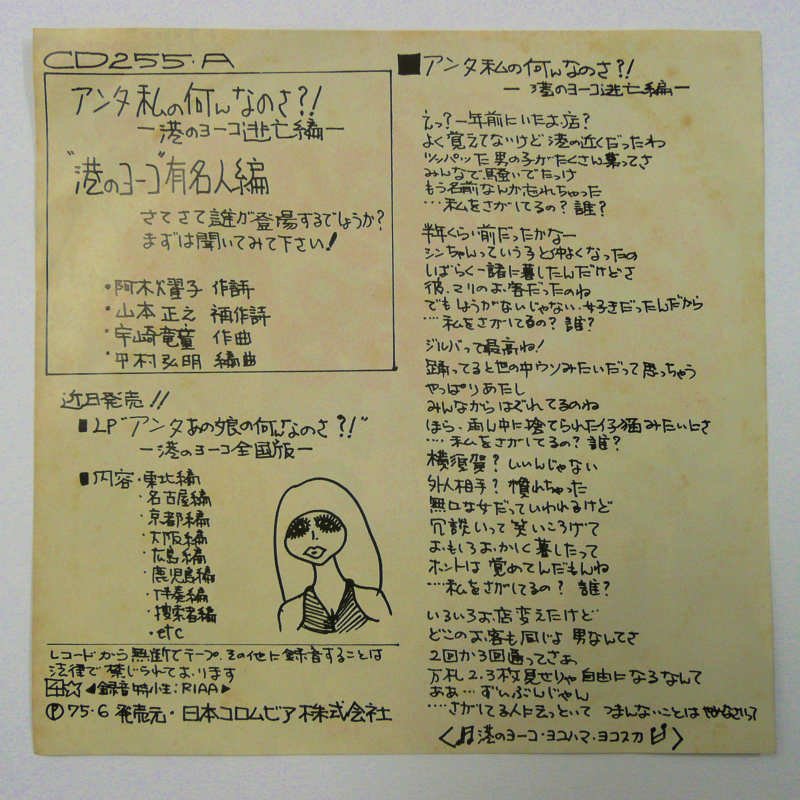 CD255・A
アンタ私の何んなのさ?!
―港のヨーコ逃亡編―
"港のヨーコ"有名人編
さてさて誰が登場するでしょうか?
まずは聞いてみて下さい!
・阿木燿子 作詩
・山本正之 補作詩
・宇崎竜童 作曲
・中村弘明 編曲
近日発売!!
■LP"アンタあの娘の何んなのさ?!"
―港のヨーコ全国版―
■内容・東北編
・名古屋編
・京都編
・大阪編
・広島編
・鹿児島編
・伴奏編
・捜索者編
・etc
レコードから無断でテープ、その他に録音することは
法律で禁じられております
◀録音特性:RIAA▶
Ⓟ75・6 発売元・日本コロムビア株式会社
■アンタ私の何んなのさ?!
―港のヨーコ逃亡編―
えっ?一年前にいたお店?
よく覚えてないけど港の近くだったわ
ツッパッた男の子がたくさん集ってさ
みんなで騒いでたっけ
もう名前なんか忘れちゃった
…私をさがしてるの? 誰?
半年くらい前だったかなー
シンちゃんっていう子と仲よくなったの
しばらく一諸に暮したんだけどさ
彼、マリのお客だったのね
でもしょうがないじゃない、好きだったんだから
…私をさがしてるの? 誰?
ジルバって最高ね!
踊ってると世の中ウソみたいだって思っちゃう
やっぱりあたし
みんなからはぐれてるのね
ほら、雨ん中に捨てられた仔猫みたいにさ
…私をさがしてるの? 誰?
横須賀? いいんじゃない
外人相手? 慣れちゃった
無口な女だっていわれるけど
冗談いって笑いころげて
おもしろおかしく暮したって
ホントは覚めてんだもんね
…私をさがしてるの? 誰?
いろいろお店変えたけど
どこのお客も同じよ 男なんてさ
2回か3回通ってさあ
万札2.3枚見せりゃ自由になるなんて
ああ…ずいぶんじゃん
…さがしてる人に云っといて つまんないことは やめなさいって
〈♬港のヨーコ・ヨコハマ・ヨコスカ♬〉